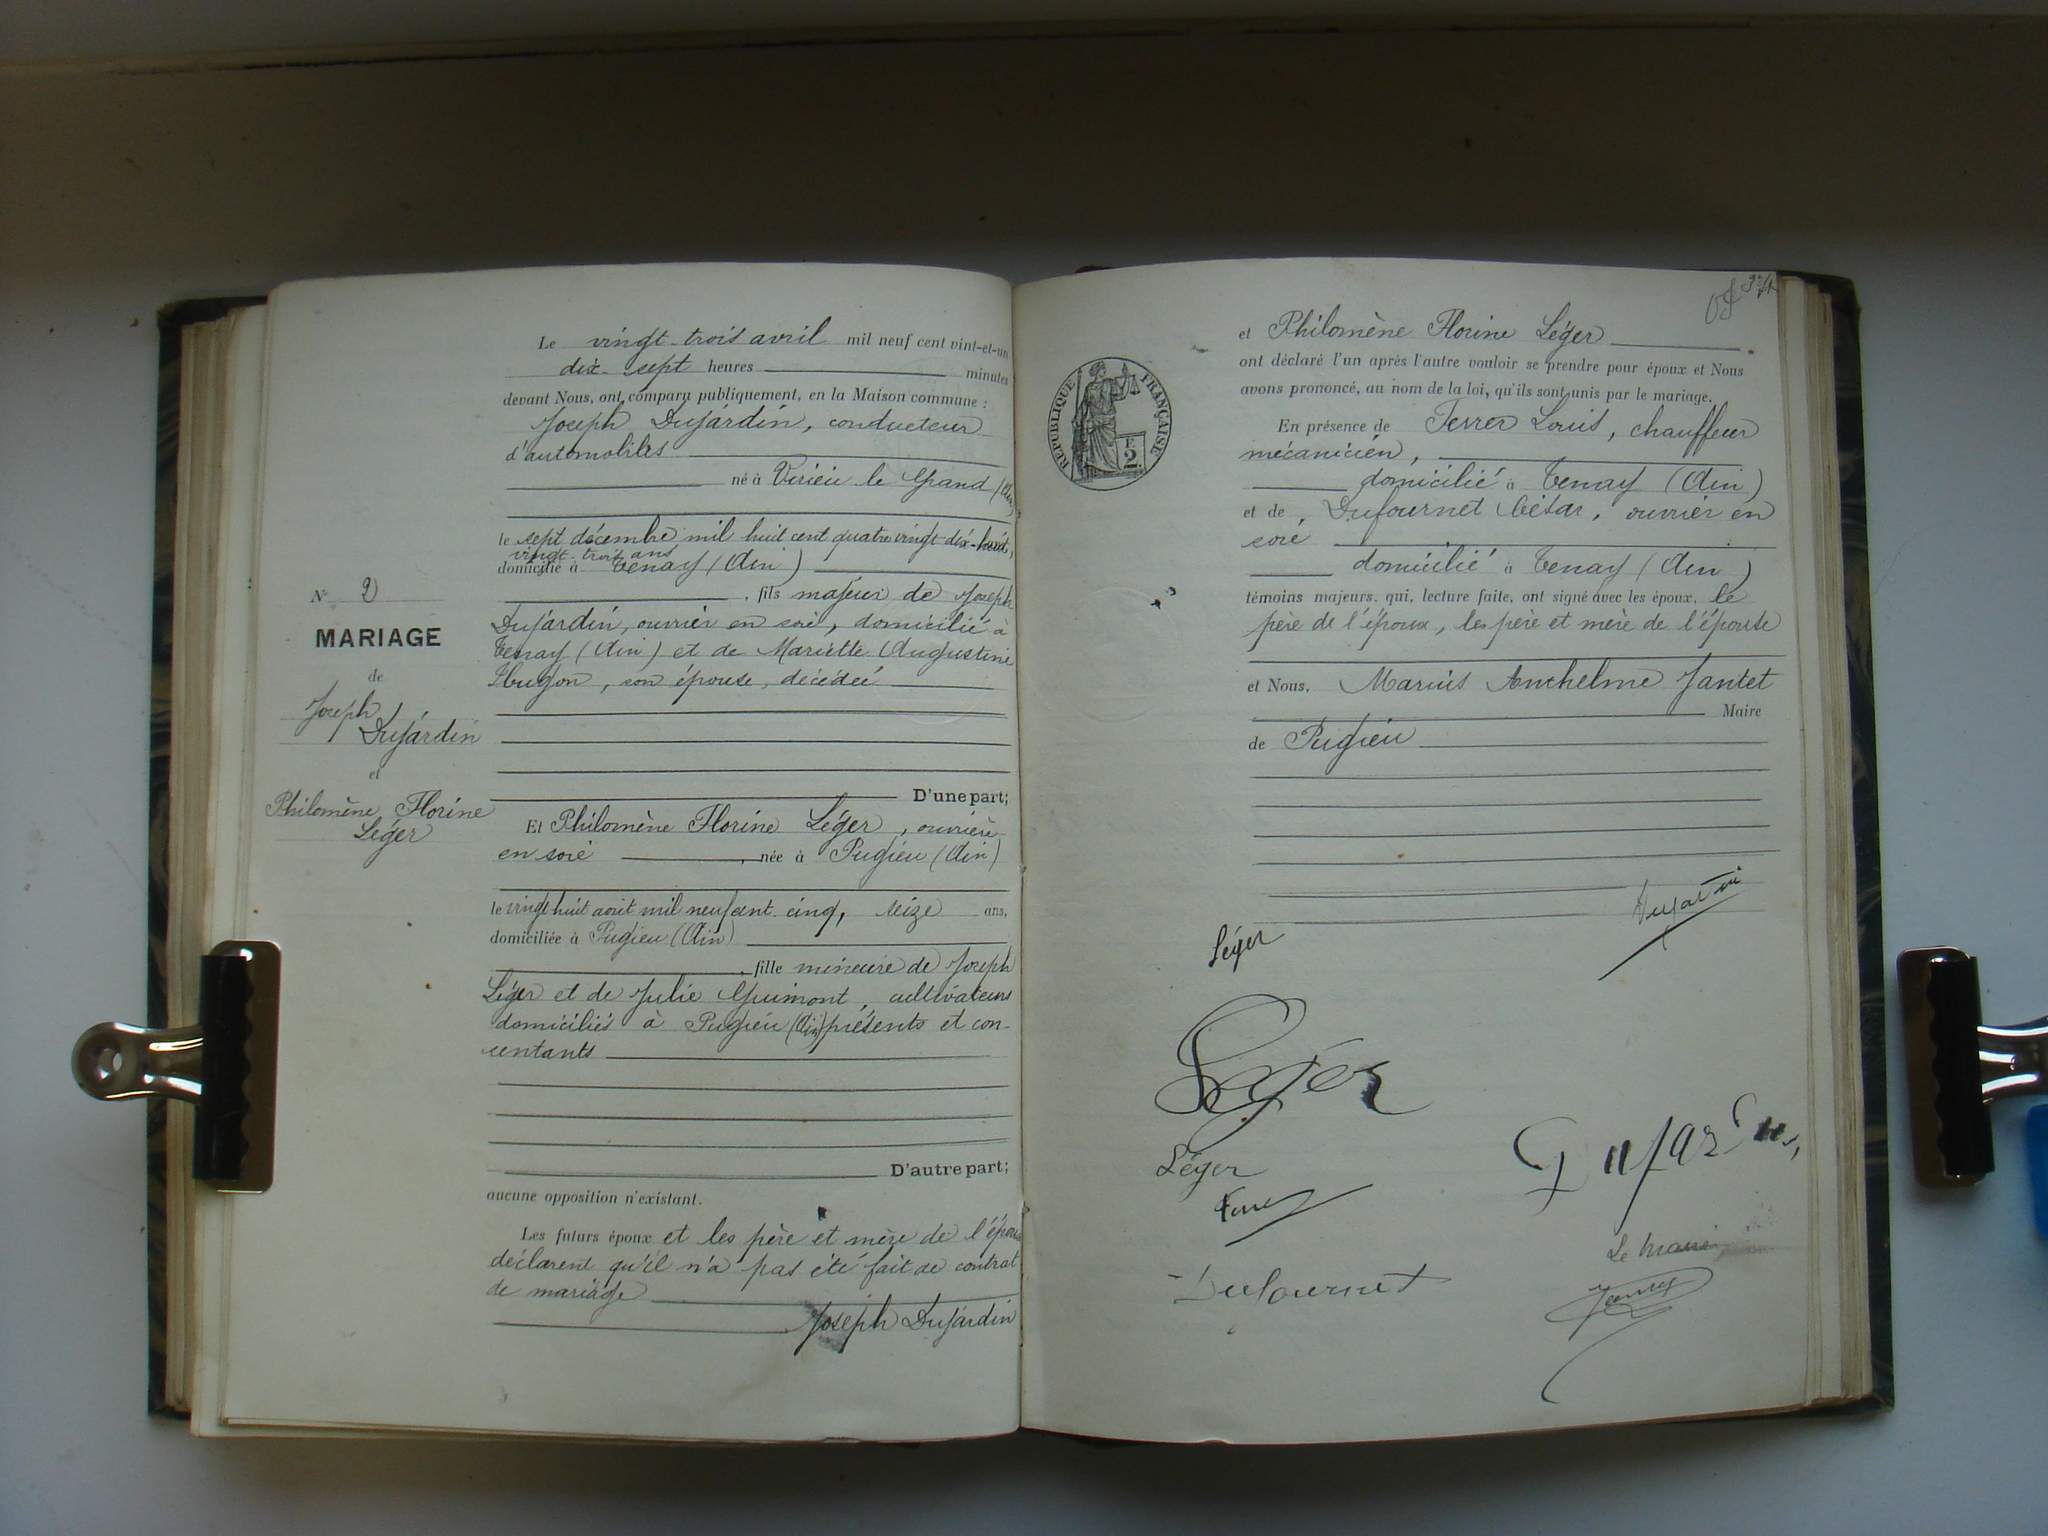 Le vingt-trois avril mil neuf cent vint-et-un
dix-sept heures minutes
devant Nous, ont comparu publiquement, en la Maison commune :
Joseph Dujardin, conducteur
d'automobiles
né à Virieu le Grand (Ain)
le sept décembre mil huit cent quatre vingt dix-huit,
vingt-trois ans
domicilié à Tenay (Ain)
, fils majeur de Joseph
Dujardin, ouvrier en soie, domicilié à
Tenay (Ain) et de Mariette Augustine
Hugon, son épouse, décédée
D'une part;
Et Philomène Florine Léger, ouvrière
en soie, née à Pugieu (Ain)
le vingt huit août mil neuf cent cinq, seize ans,
domiciliée à Pugieu (Ain)
, fille mineure de Joseph
Léger et de Julie Guimont, cultivateurs
domiciliés à Pugieu (Ain) présents et con-
sentants
D'autre part;
aucune opposition n'existant.
Les futurs époux et les père et mère de l'épouse
déclarent qu'il n'a pas été fait de contrat
de mariage
Joseph Dujardin
N° 2
MARIAGE
de
Joseph
Dujardin
et
Philomène Florine
Léger
RÉPUBLIQUE FRANÇAISE
2
et Philomène Florine Léger
ont déclaré l'un après l'autre vouloir se prendre pour époux et Nous
avons prononcé, au nom de la loi, qu'ils sont unis par le mariage.
En présence de Ferrer Louis, chauffeur
mécanicien,
domicilié à Tenay (Ain)
et de, Dufournet César, ouvrier en
soie
domicilié à Tenay (Ain)
témoins majeurs, qui, lecture faite, ont signé avec les époux, le
père de l'époux, les père et mère de l'épouse
et Nous, Marius Anthelme Jantet
Maire
de Pugieu
Dujardin
Léger
Léger
Dujardin
Léger
Dufournet
Le Maire
Jantet